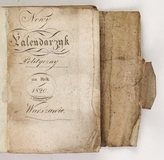 Nowy
Kalendarzyk
Polityczny
na Rok
1820.
w Warszawie.